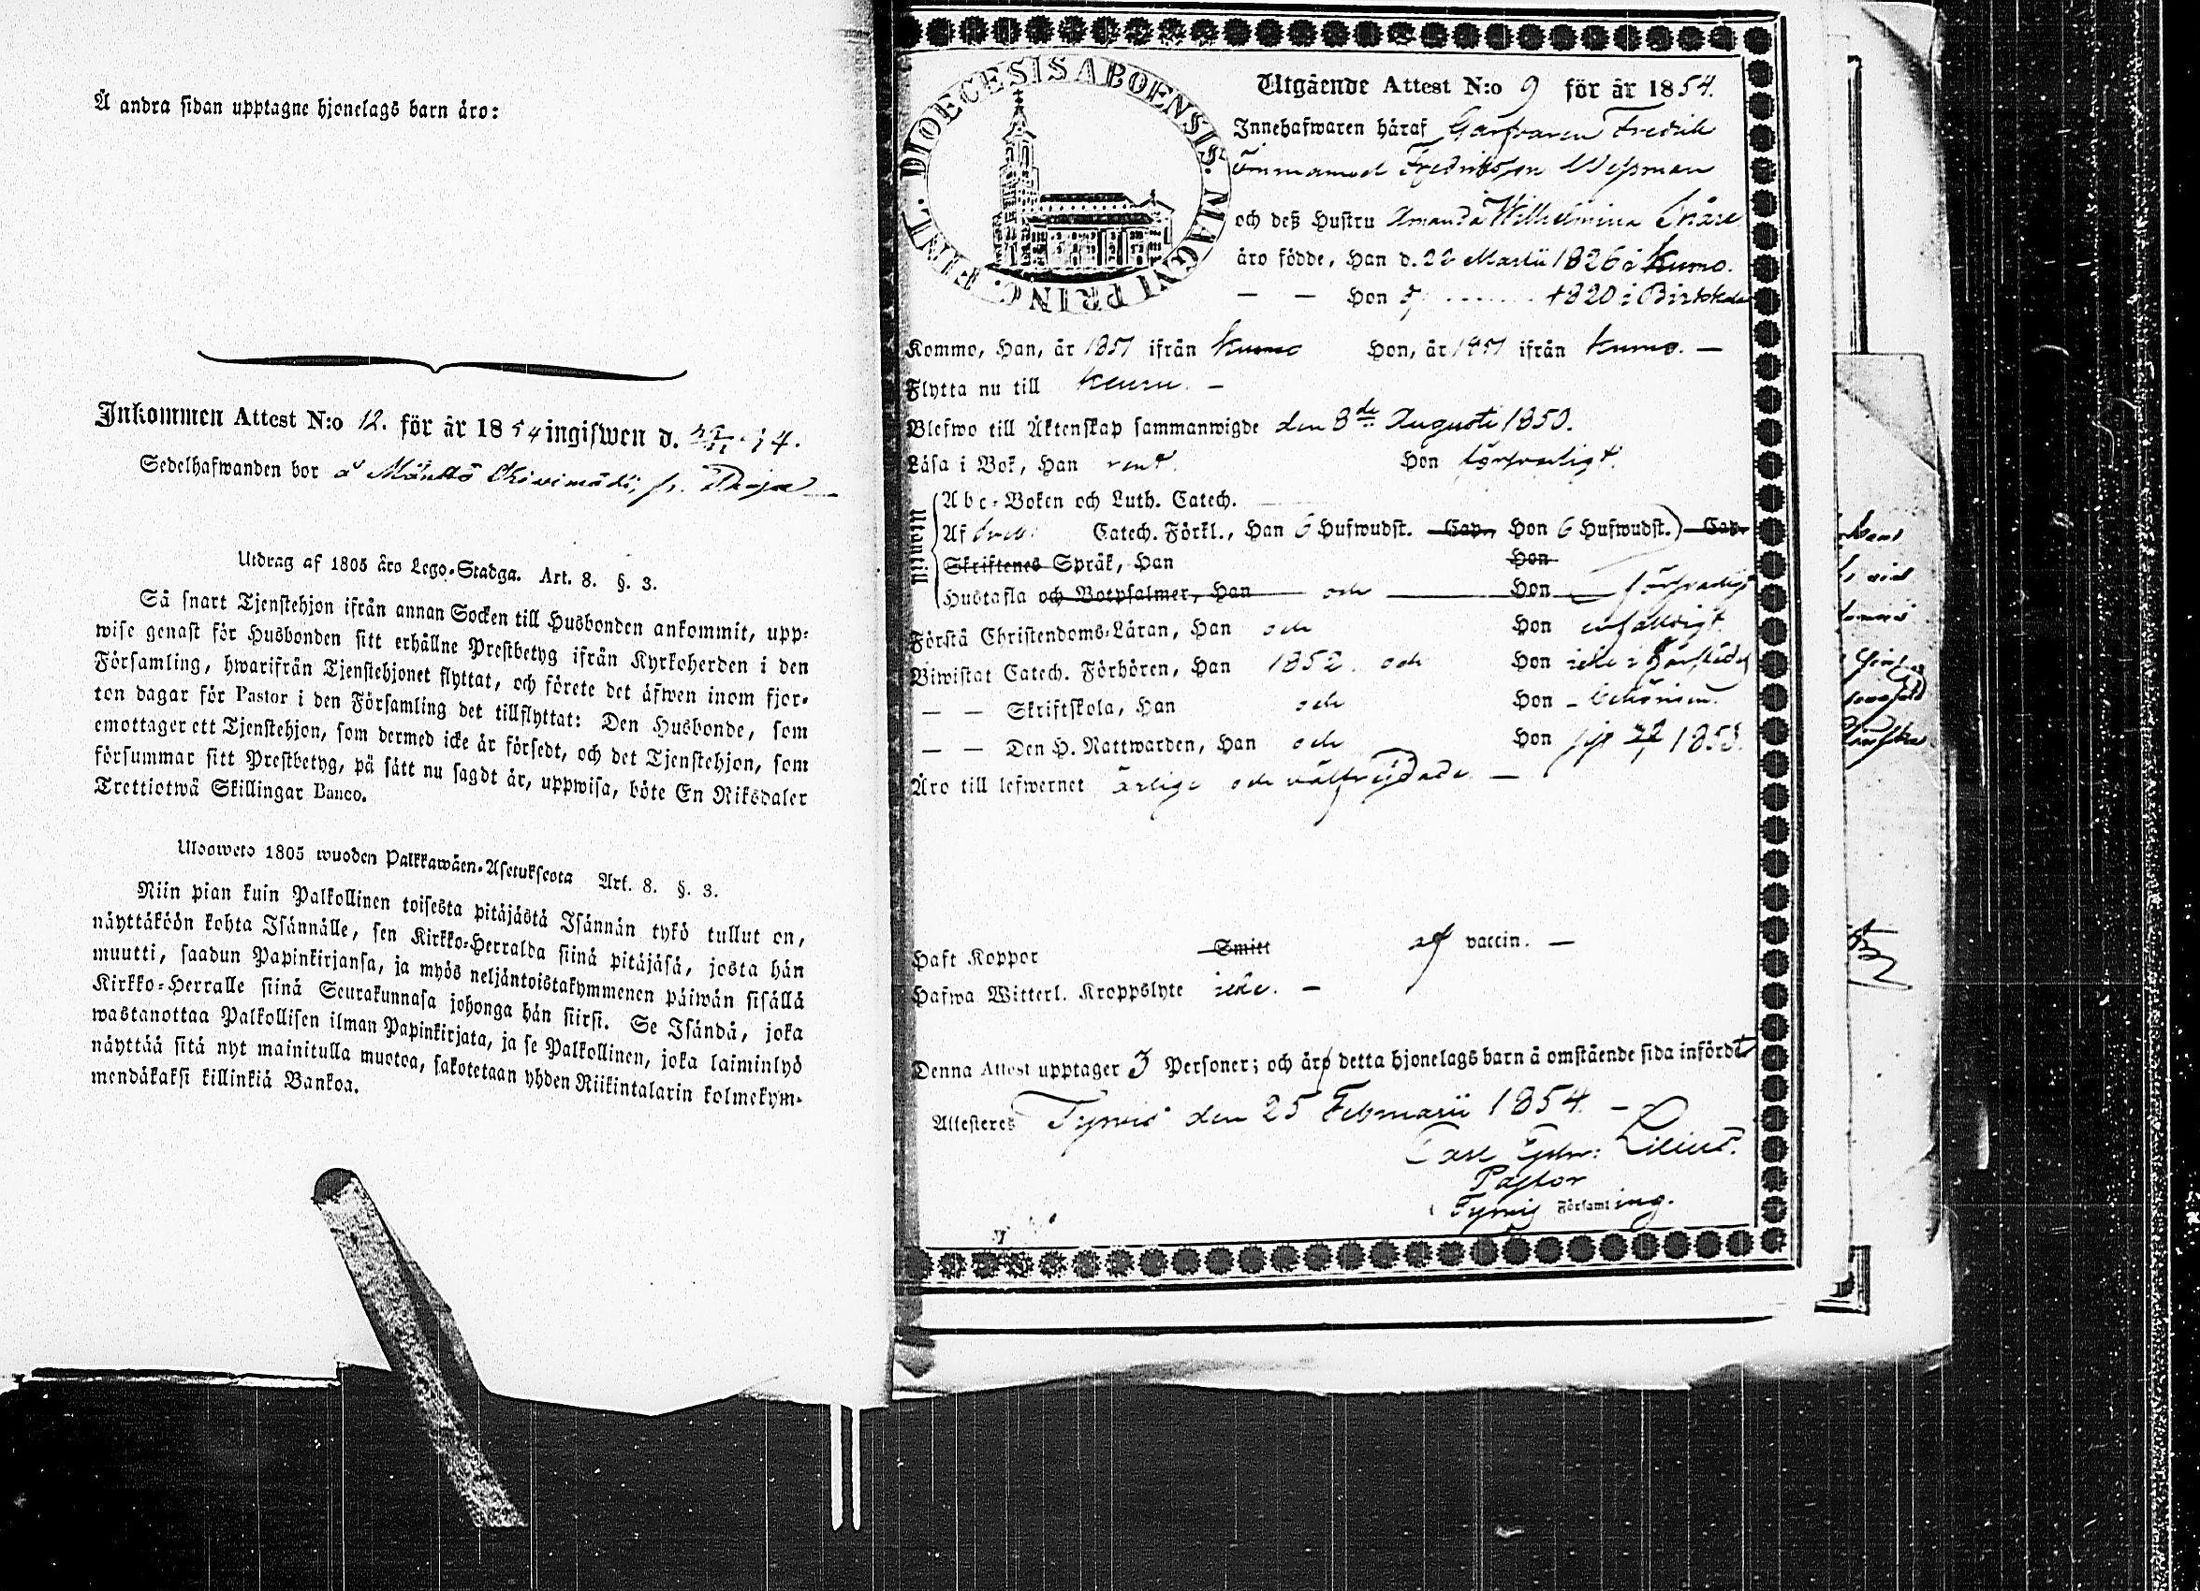 Å andra sidan upptagne hjonelags barn äro:
Inkommen Attest N:o 12. för år 1854 ingifwen d.
Sedelhafwanden bor å Mänttä
Utdrag af 1805 års Lego-Stadga. Art. 8. §. 3.
Så snart Tjenstehjon ifrån annan Socken till Husbonden ankommit, upp-
wise genast för Husbonden sitt erhållne Prestbetyg ifrån Kyrkoherden i den
Församling, hwarifrån Tjenstehjonet flyttat, och förete det äfwen inom fjor-
ton dagar för Pastor i den Församling det tillflyttat: Den Husbonde, som
emottager ett Tjenstehjon, som dermed icke är försedt, och det Tjenstehjon, som
försummar sitt Prestbetyg, på sätt nu sagdt är, uppwisa, böte En Riksdaler
Trettiotwå Skillingar Banco.
Ulosweto 1805 wuoden Palkkawäen-Asetuksesta Art. 8. §. 3.
Niin pian kuin Palkollinen toisesta pitäjästä Isännän tykö tullut on,
näyttäköön kohta Isännälle, sen Kirkko-Herralda siinä pitäjäsä, josta hän
muutti, saadun Papinkirjansa, ja myös neljäntoistakymmenen päiwän sisällä
Kirkko-Herralle siinä Seurakunnasa johonga hän siirsi. Se Isändä, joka
wastanottaa Palkollisen ilman Papinkirjata, ja se Palkollinen, joka laiminlyö
näyttää sitä nyt mainitulla muotoa, sakotetaan yhden Riikintalarin kolmekym-
mendäkaksi killinkiä Bankoa.
DIOECESIS ABOENSIS. MAGNI PRINC. FINL.
Utgående Attest N:o 9 för år 1854.
Innehafwaren häraf Garfvaren Fredrik
Emmanuel Fredriksson Wessman
och deß Hustru Amanda Wilhelmina
äro födde, Han d. 22 Martii 1826 i Kumo.
— — Hon 1820 i Birkkala
Kommo, Han, år 1851 ifrån Kumo Hon, år 1851 ifrån Kumo. —
Flytta nu till Keuru. —
Blefwo till Äktenskap sammanwigde den 8de Augusti 1850.
Läsa i Bok, Han rent. Hon försvarligt.
Utantill
Abc-Boken och Luth. Catech.
Af Catech. Förkl., Han 6 Hufwudst. Cap. Hon 6 Hufwudst. Cap.
Skriftenes Språk, Han Hon
Hustafla och Botpsalmer, Han och Hon försvarligt
Förstå Christendoms-Läran, Han och Hon enfaldigt.
Biwistat Catech. Förhören, Han 1852 och Hon icke i
— — Skriftskola, Han och Hon
— — Den H. Nattwarden, Han och Hon 1853.
Äro till lefwernet ärlige och välfrejdade. —
Haft Koppor Smitt vaccin. —
Hafwa Witterl. Kroppslyte icke. —
Denna Attest upptager 3 Personer; och äro detta hjonelags barn å omstående sida införde
Attesteres Tyrvis den 25 Februarii 1854. —
Carl Lilius.
Pastor
Tyrvis Församling.